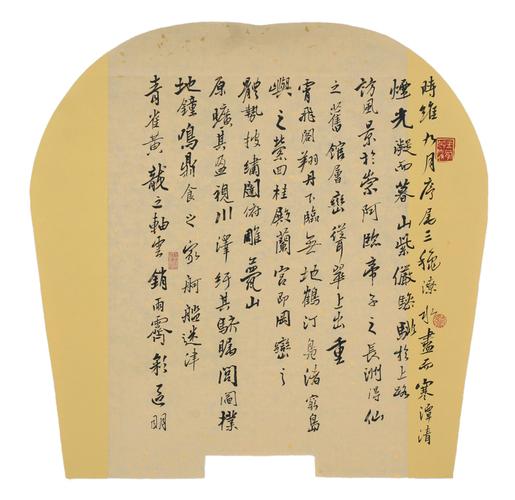 時維九月序屬三秋潦水盡而寒潭清
煙光凝而暮山紫儼驂騑於上路
訪風景於崇阿臨帝子之長洲得仙
之舊館層巒聳翠上出重
霄飛閣翔丹下臨無地鶴汀鳧渚窮島
嶼之縈回桂殿蘭宮即岡巒之
體勢披繡闥俯雕甍山
原曠其盈視川澤紆其駭矚閭閻撲
地鐘鳴鼎食之家舸艦迷津
青雀黃龍之軸雲銷雨霽彩區明